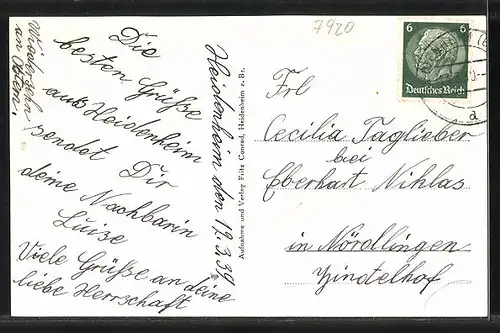 7920
Wiedersehn
an Ostern!
Die
besten Grüße
aus Heidenheim
sendet Dir
deine Nachbarin
Luise
Viele Grüße an deine
liebe Herrschaft
Heidenheim den 19.3.39
Aufnahme und Verlag Fritz Conrad, Heidenheim a. Br.
6 6
Deutsches Reich
a
Frl
Cecilia Taglieber
bei
Eberhart Niklas
in Nördlingen